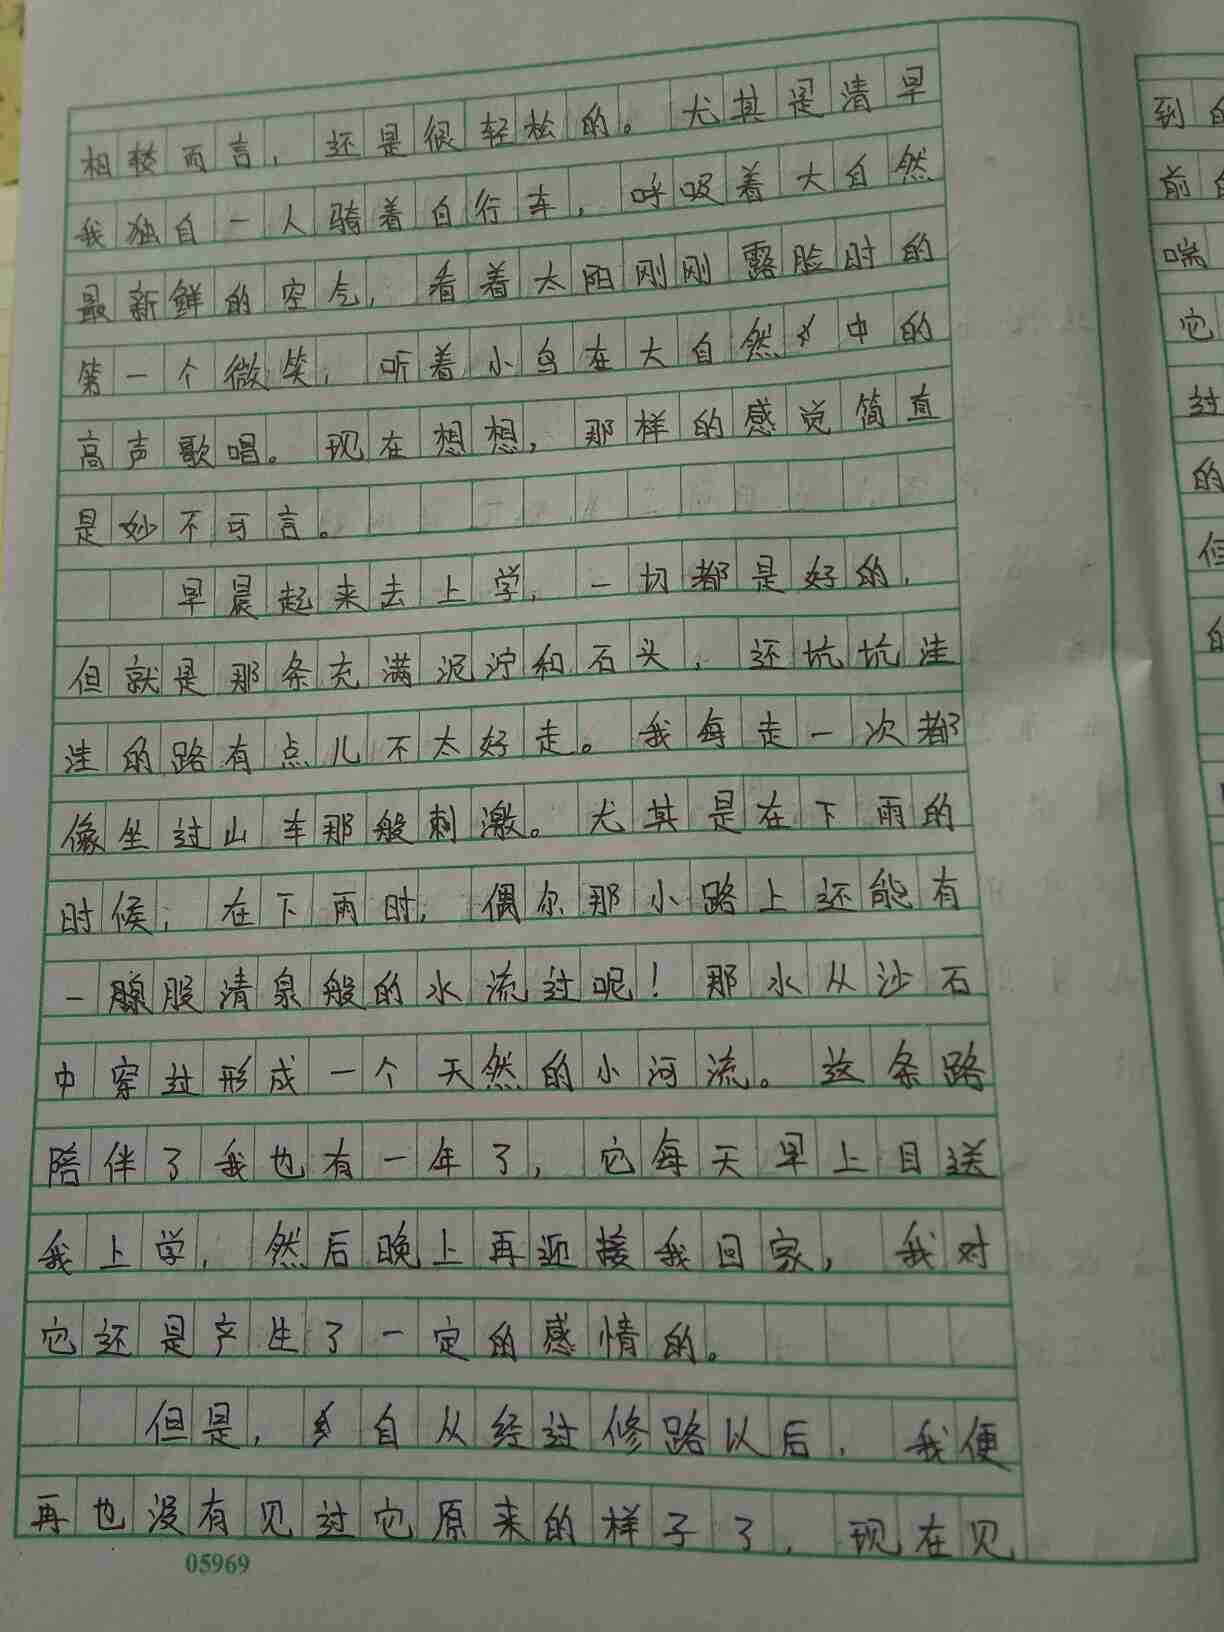 相较而言，还是很轻松的。尤其是清早
我独自一人骑着自行车，呼吸着大自然
最新鲜的空气，看着太阳刚刚露脸时的
第一个微笑，听着小鸟在大自然中的
高声歌唱。现在想想，那样的感觉简直
是妙不可言。
早晨起来去上学，一切都是好的，
但就是那条充满泥泞和石头，还坑坑洼
洼的路有点儿不太好走。我每走一次都
像坐过山车那般刺激。尤其是在下雨的
时候，在下雨时，偶尔那小路上还能有
一股清泉般的水流过呢！那水从沙石
中穿过形成一个天然的小河流。这条路
陪伴了我也有一年了，它每天早上目送
我上学，然后晚上再迎接我回家，我对
它还是产生了一定的感情的。
但是，自从经过修路以后，我便
再也没有见过它原来的样子了，现在见
05969
到
前
喘
它
过
的
但
的